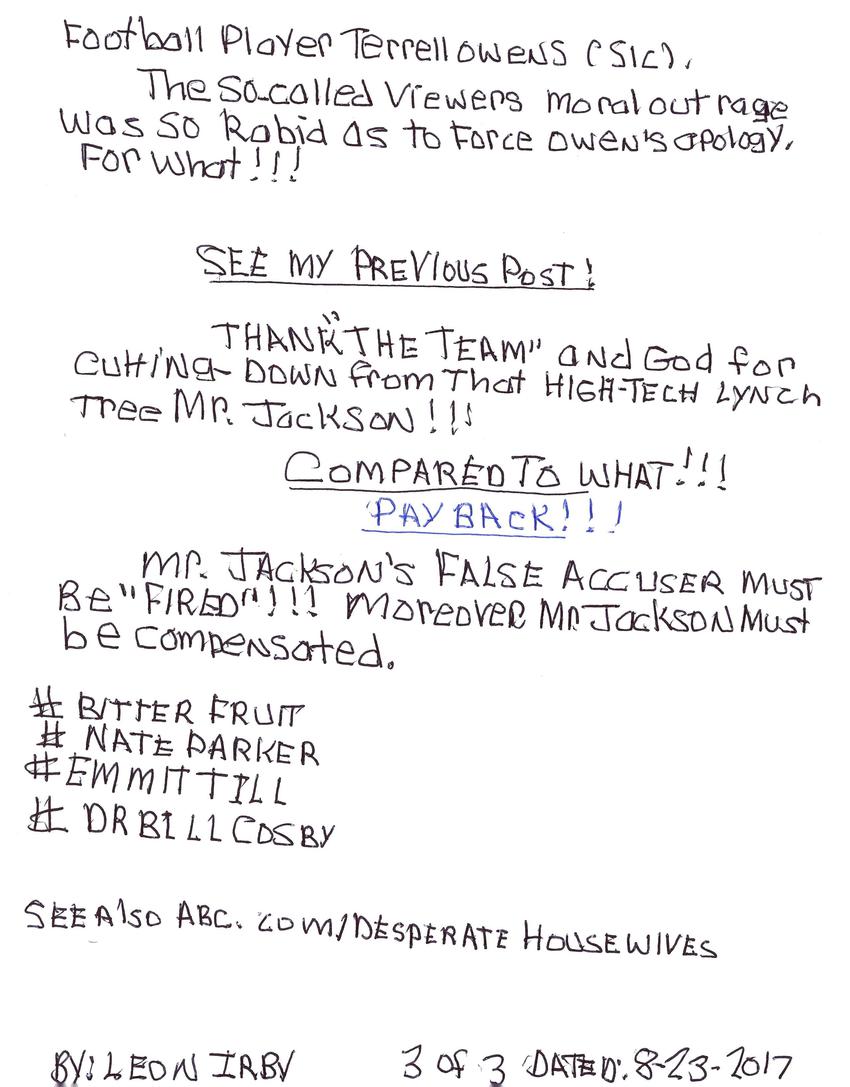 Football Player Terrell owens (Sic).
The So-called Viewers moral outrage
Was So Rabid as to Force owen's apology.
For what!!!
SEE MY PREVIOUS POST!
THANK "THE TEAM" and God for
Cutting DOWN from That HIGH-TECH LYNch
Tree MR. JacksoN!!!
COMPARED TO WHAT!!!
PAY BACK!!!
MR. JACKSON'S FALSE ACCUSER MUST
Be "FIRED"!!! Moreover MR JacksoN Must
be compensated.
# BITTER FRUIT
# NATE PARKER
# EMMIT TILL
# DR BILL COSBY
SEE Also ABC.COM/DESPERATE HOUSEWIVES
BY: LEON IRBY 3 OF 3 DATED: 8-23-2017